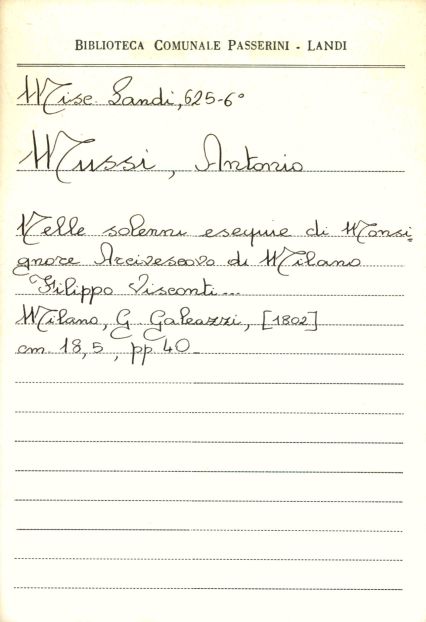 BIBLIOTECA COMUNALE PASSERINI - LANDI
Misc. Landi, 625-6°
Mussi, Antonio
Nelle solenni esequie di Monsi=
gnore Arcivescovo di Milano
Filippo Visconti...
Milano, G. Galeazzi, [1802]
cm. 18,5, pp. 40.